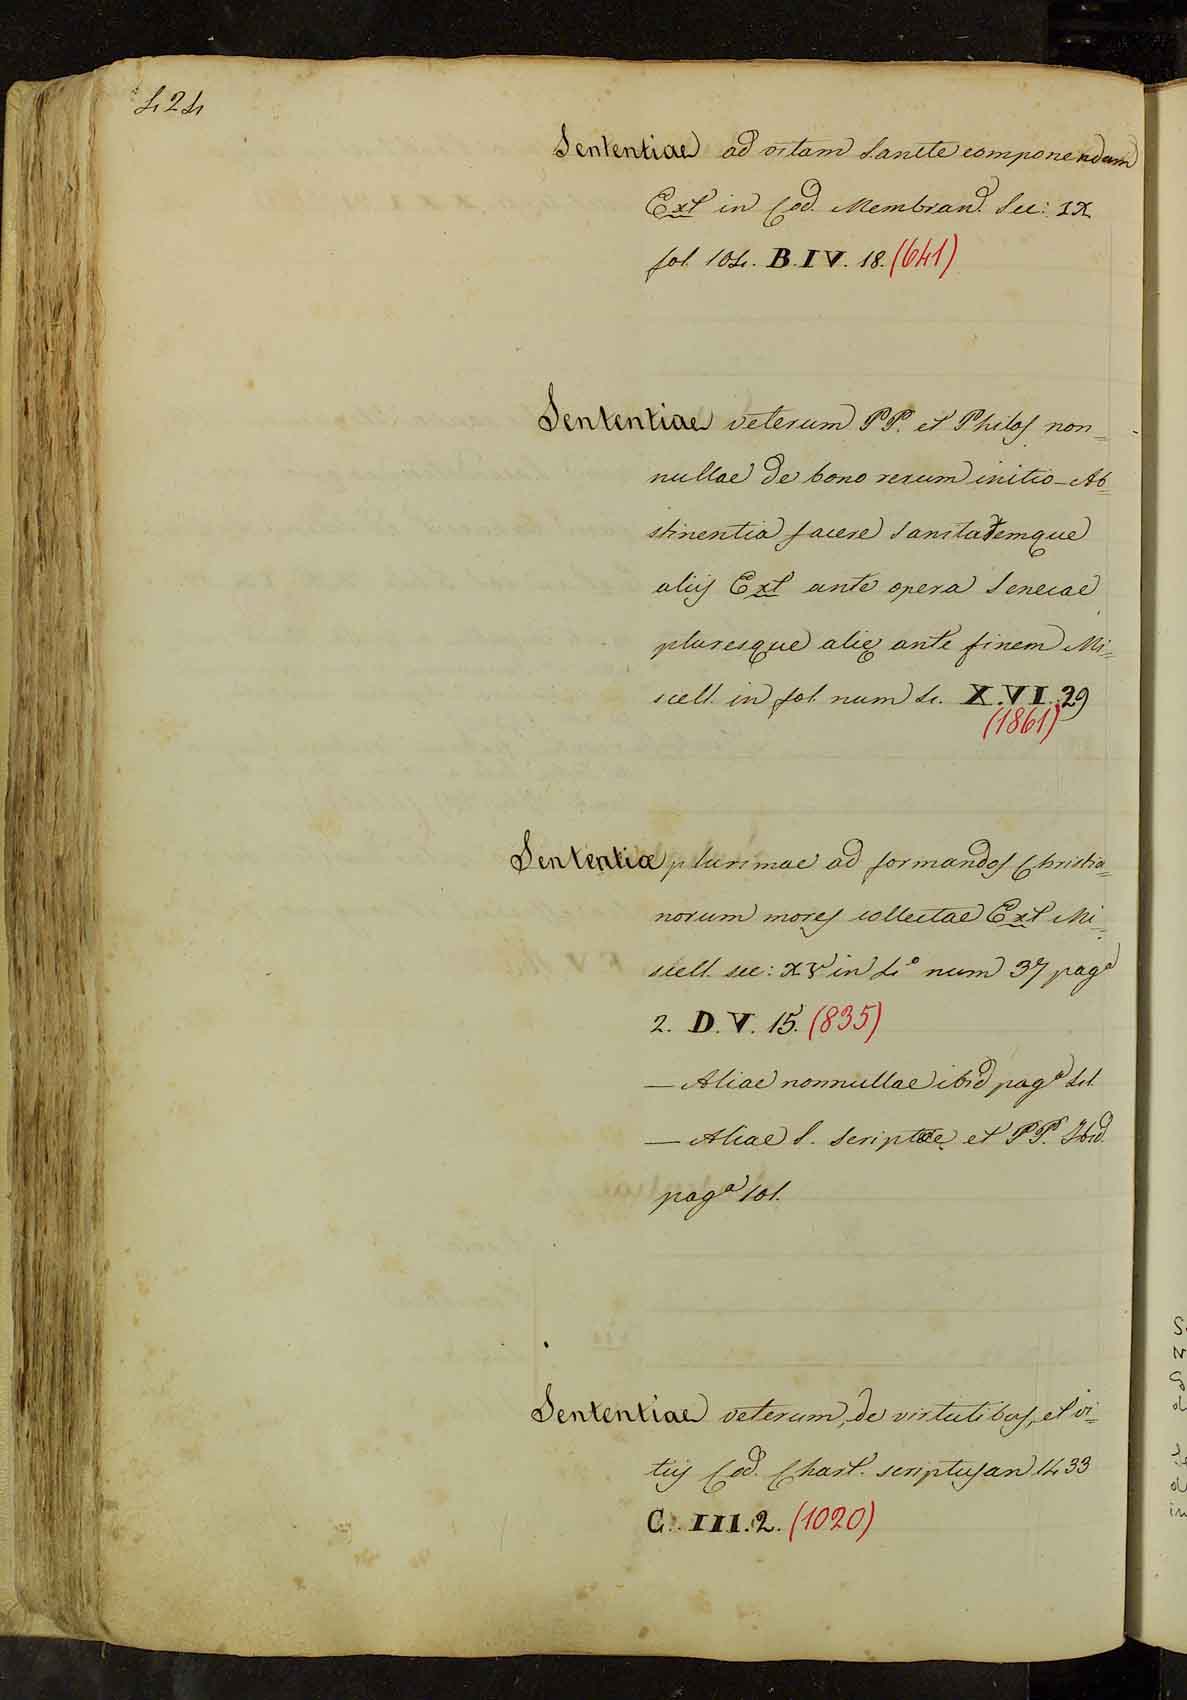 424
Sententiae ad vitam sancte componendam
Ext in Cod. Membran. Sec: IX
fol. 104. B. IV. 18. (641)
Sententiae veterum PP. et Philos non=
nullae de bono rerum initio - Ab=
stinentia facere sanitatemque
alijs Ext ante opera Senecae
pluresque alie ante finem Mi=
scell. in fol. num 4. X. VI. 29
(1861)
Sententiæ plurimae ad formandos Christia=
norum mores collectae Ext Mi=
scell. sec: XV in 4º num 37 pagª
2. D. V. 15. (835)
— Aliae nonnullae ibid pagª 41.
— Aliae S. Scripturae et PP. Ibid.
pagª 101.
Sententiae veterum, de virtutibus, et vi=
tijs Cod. Chart. scriptus an 1433
C. III. 2. (1020)